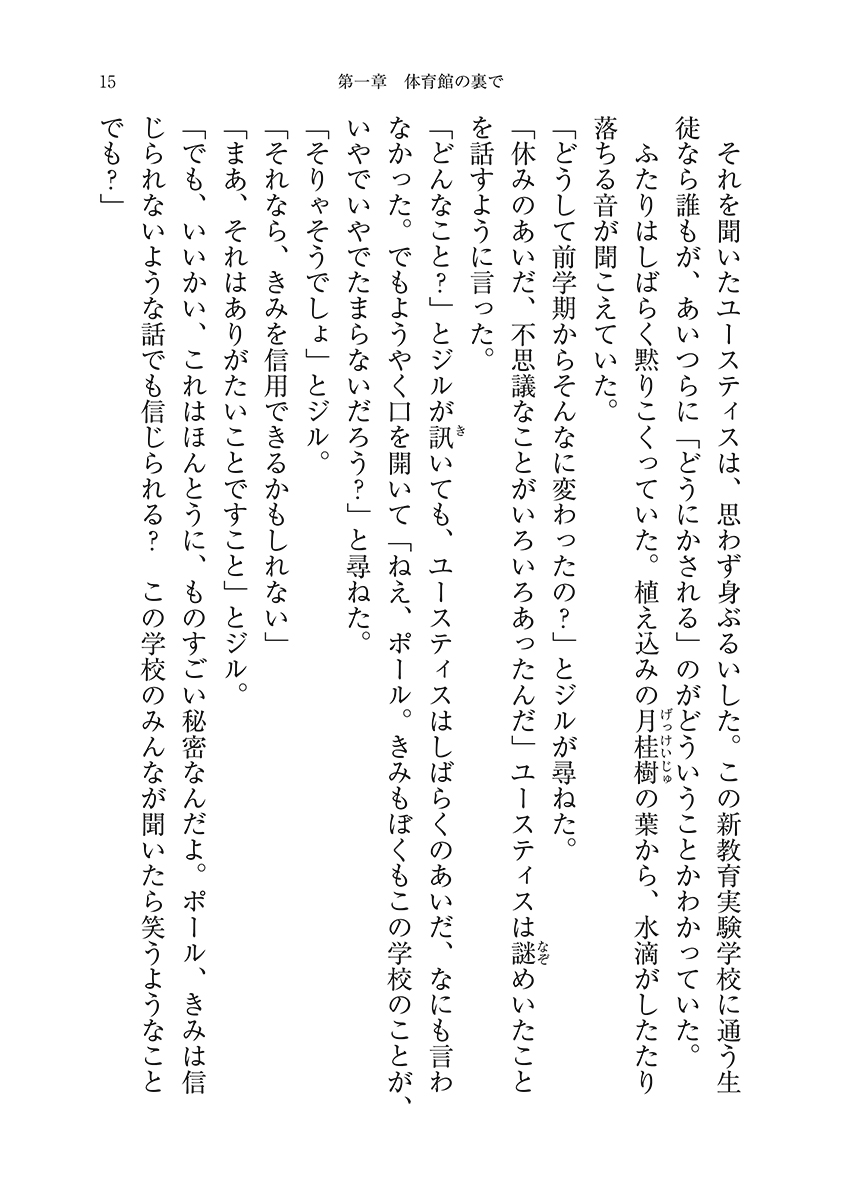 15
第一章　体育館の裏で
それを聞いたユースティスは、思わず身ぶるいした。この新教育実験学校に通う生
徒なら誰もが、あいつらに「どうにかされる」のがどういうことかわかっていた。
ふたりはしばらく黙りこくっていた。植え込みの月桂樹の葉から、水滴がしたたり
げっけいじゅ
落ちる音が聞こえていた。
「どうして前学期からそんなに変わったの？」とジルが尋ねた。
「休みのあいだ、不思議なことがいろいろあったんだ」ユースティスは謎めいたこと
なぞ
を話すように言った。
「どんなこと？」とジルが訊いても、ユースティスはしばらくのあいだ、なにも言わ
き
なかった。でもようやく口を開いて「ねえ、ポール。きみもぼくもこの学校のことが、
いやでいやでたまらないだろう？」と尋ねた。
「そりゃそうでしょ」とジル。
「それなら、きみを信用できるかもしれない」
「まあ、それはありがたいことですこと」とジル。
「でも、いいかい、これはほんとうに、ものすごい秘密なんだよ。ポール、きみは信
じられないような話でも信じられる？　この学校のみんなが聞いたら笑うようなこと
でも？」